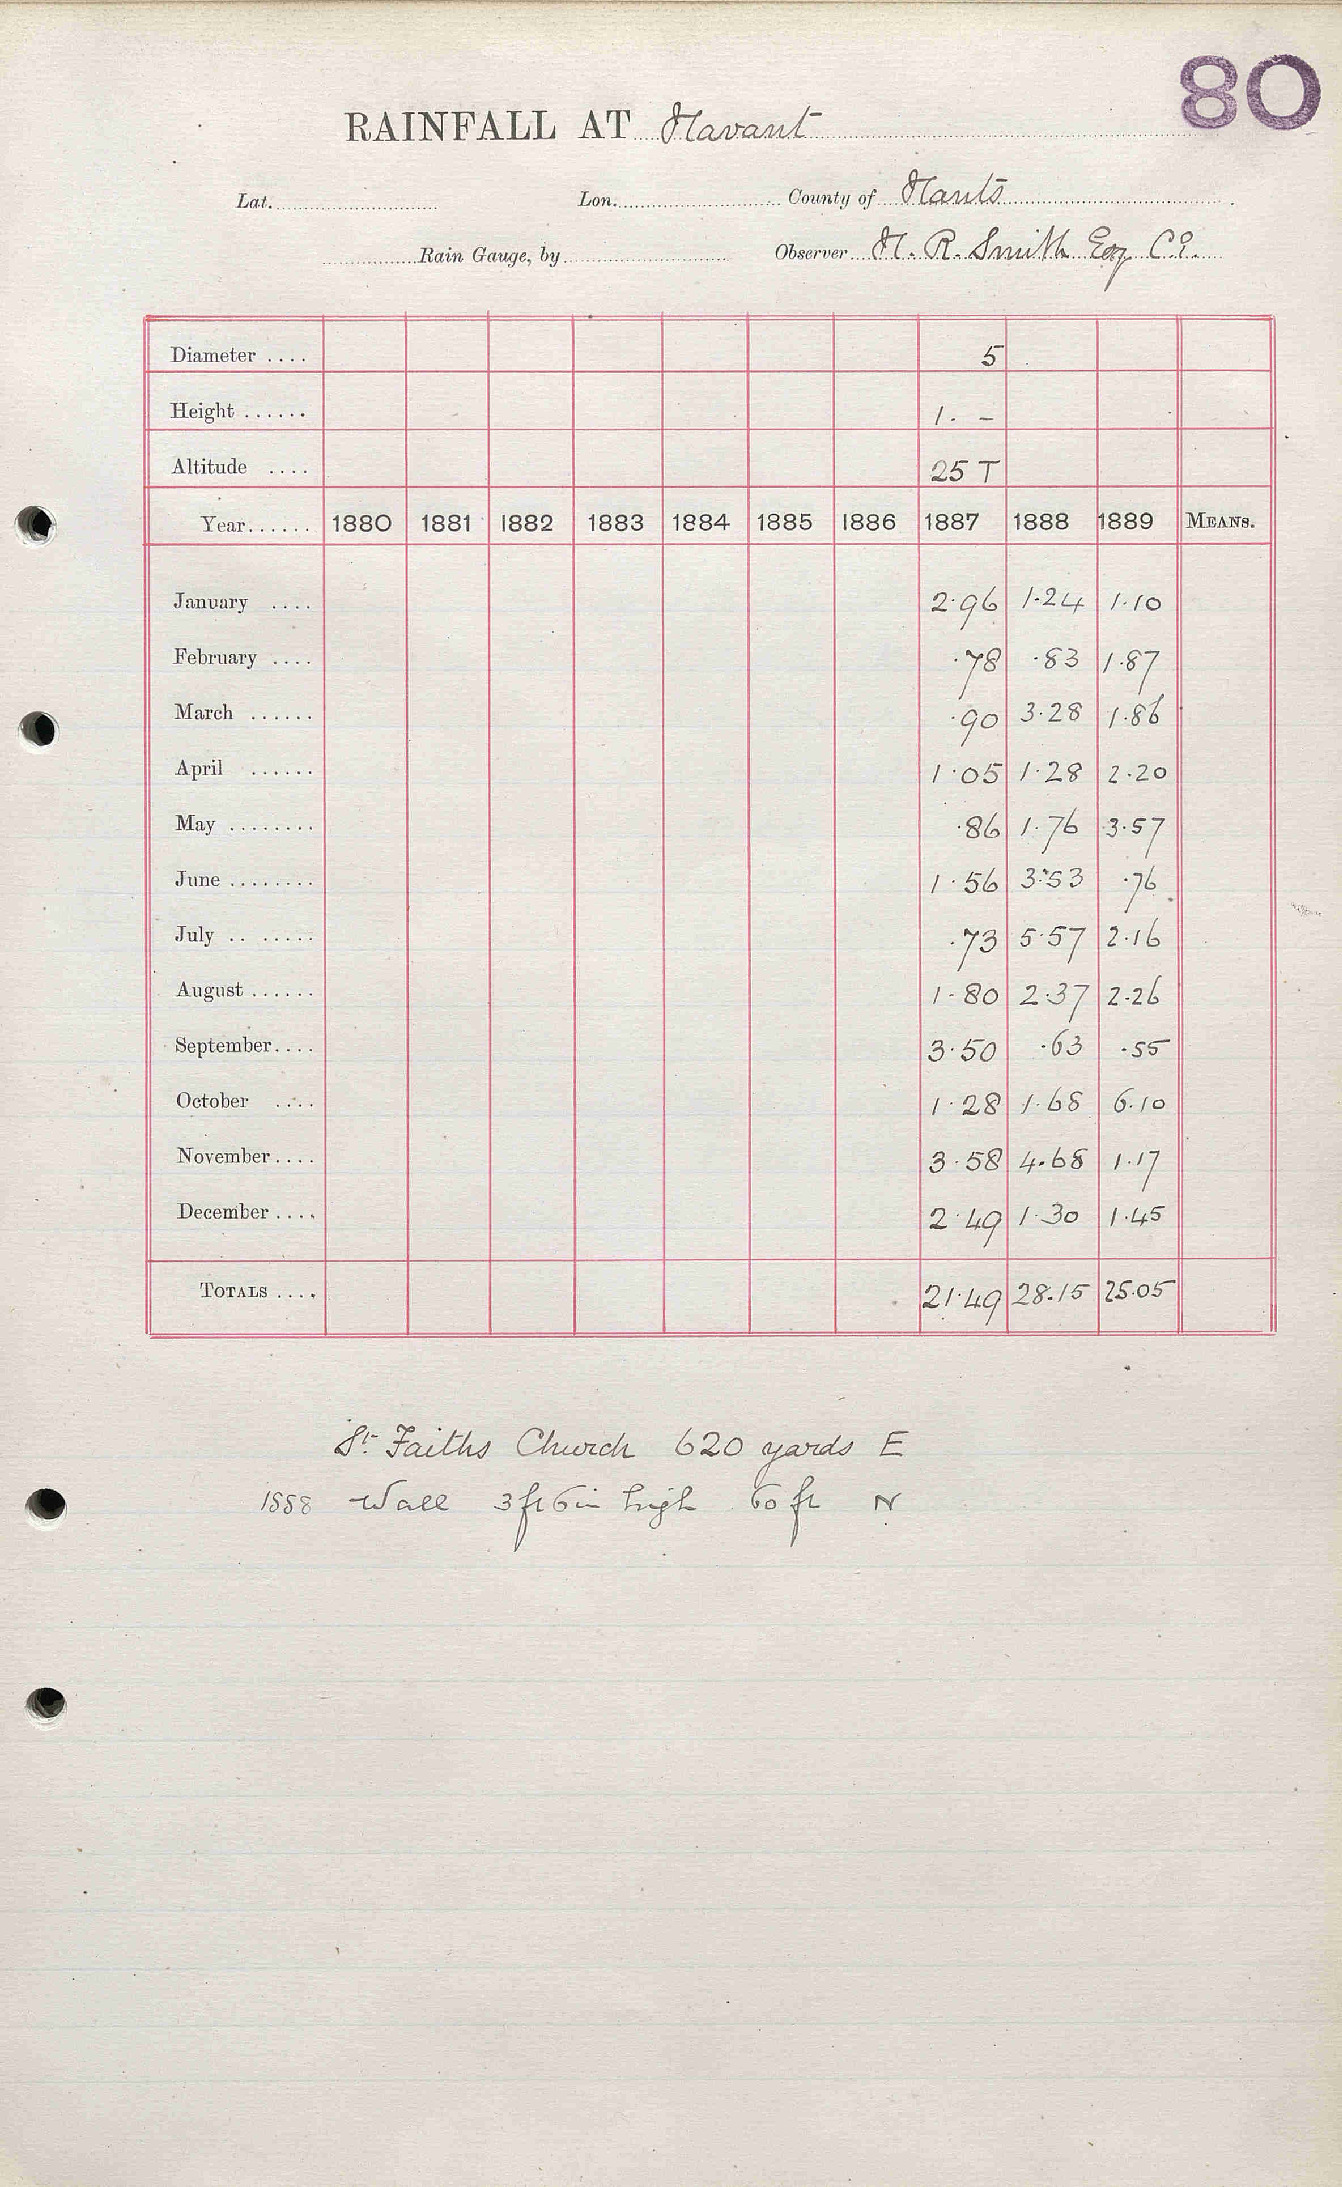 80
RAINFALL AT Havant
Lat. Lon. County of Hants
Rain Gauge, by Observer H. R. Smith Esq C.E.
Diameter .... 5
Height ...... 1. –
Altitude .... 25 T
Year ...... 1880 1881 1882 1883 1884 1885 1886 1887 1888 1889 MEANS.
January .... 2.96 1.24 1.10
February .... .78 .83 1.87
March ...... .90 3.28 1.86
April ...... 1.05 1.28 2.20
May ........ .86 1.76 3.57
June ........ 1.56 3.53 .76
July .. ...... .73 5.57 2.16
August ...... 1.80 2.37 2.26
September.... 3.50 .63 .55
October .... 1.28 1.68 6.10
November.... 3.58 4.68 1.17
December .... 2.49 1.30 1.45
TOTALS .... 21.49 28.15 25.05
St. Faiths Church 620 yards E
1888 Wall 3ft 6in high 60 ft N